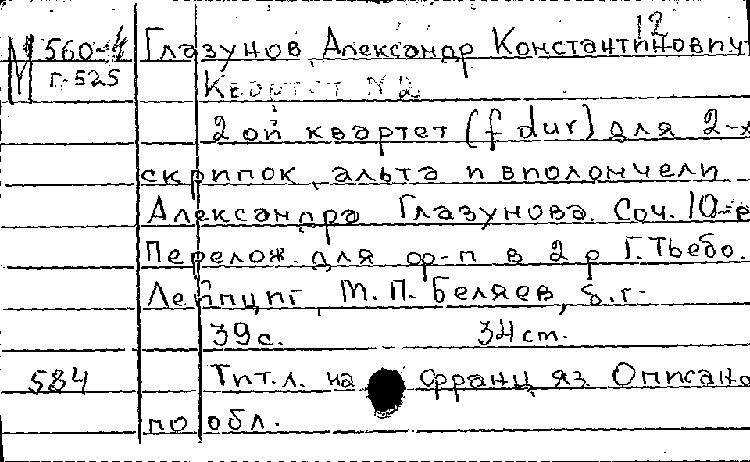 12
М 560-4 Глазунов, Александр Константинович
Г-525 Квартет №2
2ой квартет (f dur) для 2-х
скрипок, альта и виолончели
Александра Глазунова. Соч. 10-е
Перелож. для ф-п в 2 р Г. Тьебо.
Лейпциг, М. П. Беляев, б.г.
39 с. 34 см.
584 Тит.л. на франц яз Описано
по обл.